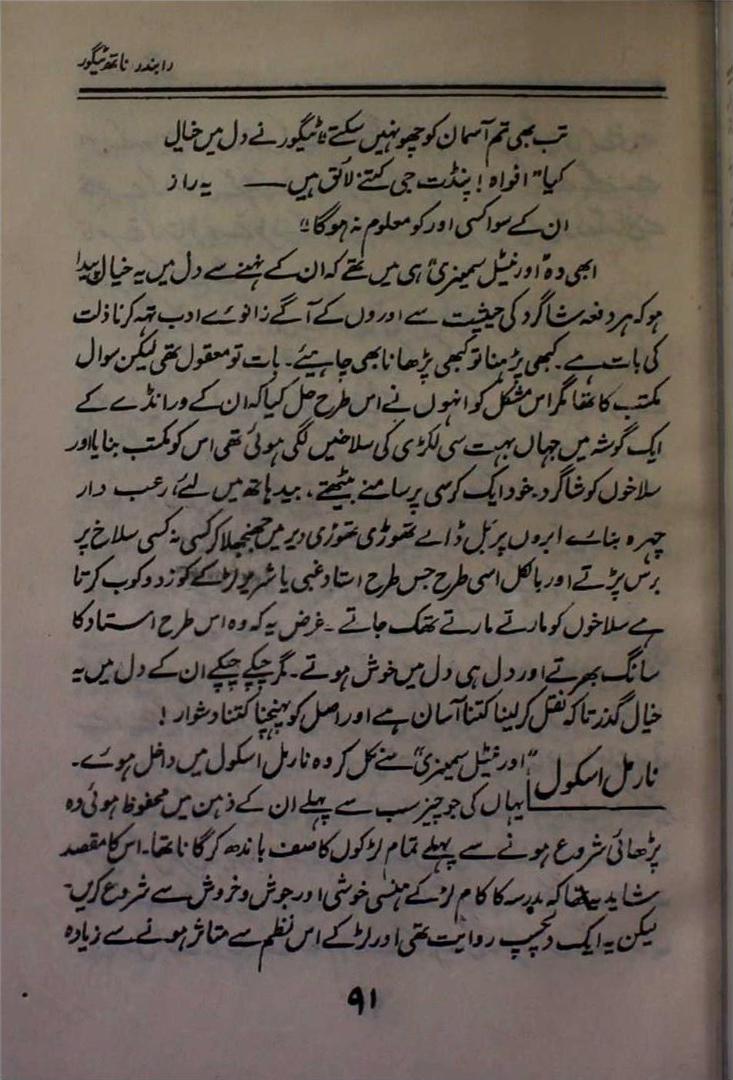 رابندر ناتھ ٹیگور
تب بھی تم آسمان کو چھو نہیں سکتے" ٹیگور نے دل میں خیال
کیا" افواہ! پنڈت جی کتنے لائق ہیں —— یہ راز
ان کے سوا کسی اور کو معلوم نہ ہوگا"
ابھی وہ "اورینٹیل سمینری" ہی میں تھے کہ ان کے ننھے سے دل میں یہ خیال پیدا
ہو کہ ہر دفعہ شاگرد کی حیثیت سے اوروں کے آگے زانوے ادب تہہ کرنا ذلت
کی بات ہے۔ کبھی پڑہنا تو کبھی پڑھانا بھی چاہیئے۔ بات تو معقول تھی لیکن سوال
مکتب کا تھا مگر اس مشکل کو انہوں نے اس طرح حل کیا کہ ان کے ورانڈے کے
ایک گوشہ میں جہاں بہت سی لکڑی کی سلاخیں لگی ہوئی تھی اس کو مکتب بنایا اور
سلاخوں کو شاگرد۔ خود ایک کرسی پر سامنے بیٹھتے۔ بید ہاتھ میں لئے، رعب دار
چہرہ بناے ابروں پر بل ڈالے تھوڑی تھوڑی دیر میں جھنجھلا کر کسی نہ کسی سلاخ پر
برس پڑتے اور بالکل اسی طرح جس طرح استاد غبی یا شریر لڑکے کو زدوکوب کرتا
ہے سلاخوں کو مارتے مارتے تھک جاتے۔ غرض یہ کہ وہ اس طرح استاد کا
سانگ بھرتے اور دل ہی دل میں خوش ہوتے۔ مگر چپکے چپکے ان کے دل میں یہ
خیال گذرتا کہ نقل کر لینا کتنا آسان ہے اور اصل کو پہنچنا کتنا دشوار!
نارمل اسکول "اورینٹیل سمینری" سے نکل کر وہ نارمل اسکول میں داخل ہوے۔
یہاں کی جو چیز سب سے پہلے ان کے ذہن میں محفوظ ہوئی وہ
پڑھائی شروع ہونے سے پہلے تمام لڑکوں کا صف باندھ کر گانا تھا۔ اس کا مقصد
شاید یہ تھا کہ مدرسہ کا کام لڑکے ہنسی خوشی اور جوش و خروش سے شروع کریں۔
لیکن یہ ایک دلچسپ روایت تھی اور لڑکے اس نظم سے متاثر ہونے سے زیادہ
۹۱